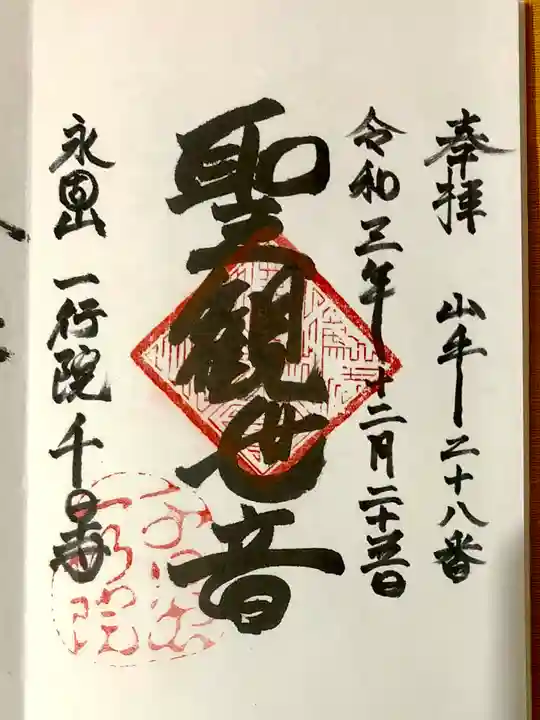 奉拝 山手二十八番
令和三年十二月二十一日
聖観世音
永固山 一行院千日寺